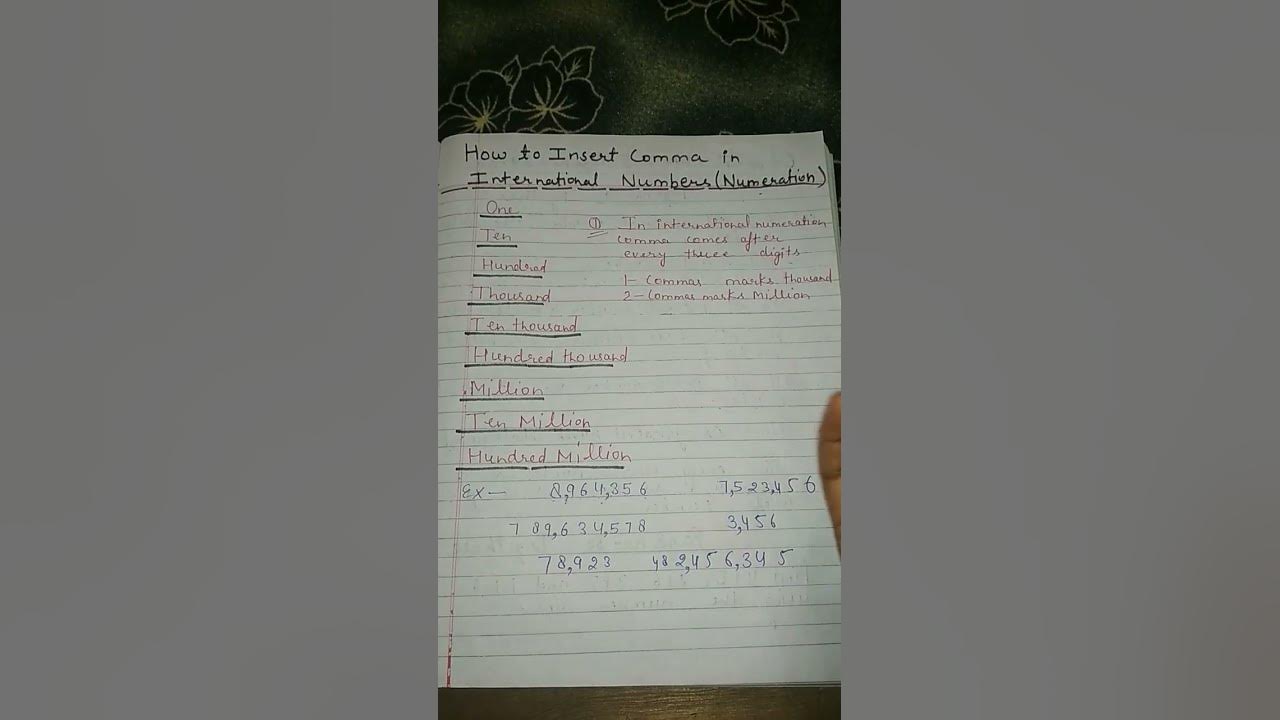 How to Insert Comma in
International Numbers (Numeration)
One
① In international numeration
comma comes after
every three digits
Ten
Hundred
1- Commas marks thousand
2- Commas marks Million
Thousand
Ten thousand
Hundred thousand
Million
Ten Million
Hundred Million
Ex— 8,964,356 7,523,456
789,634,578 3,456
78,923 482,456,345